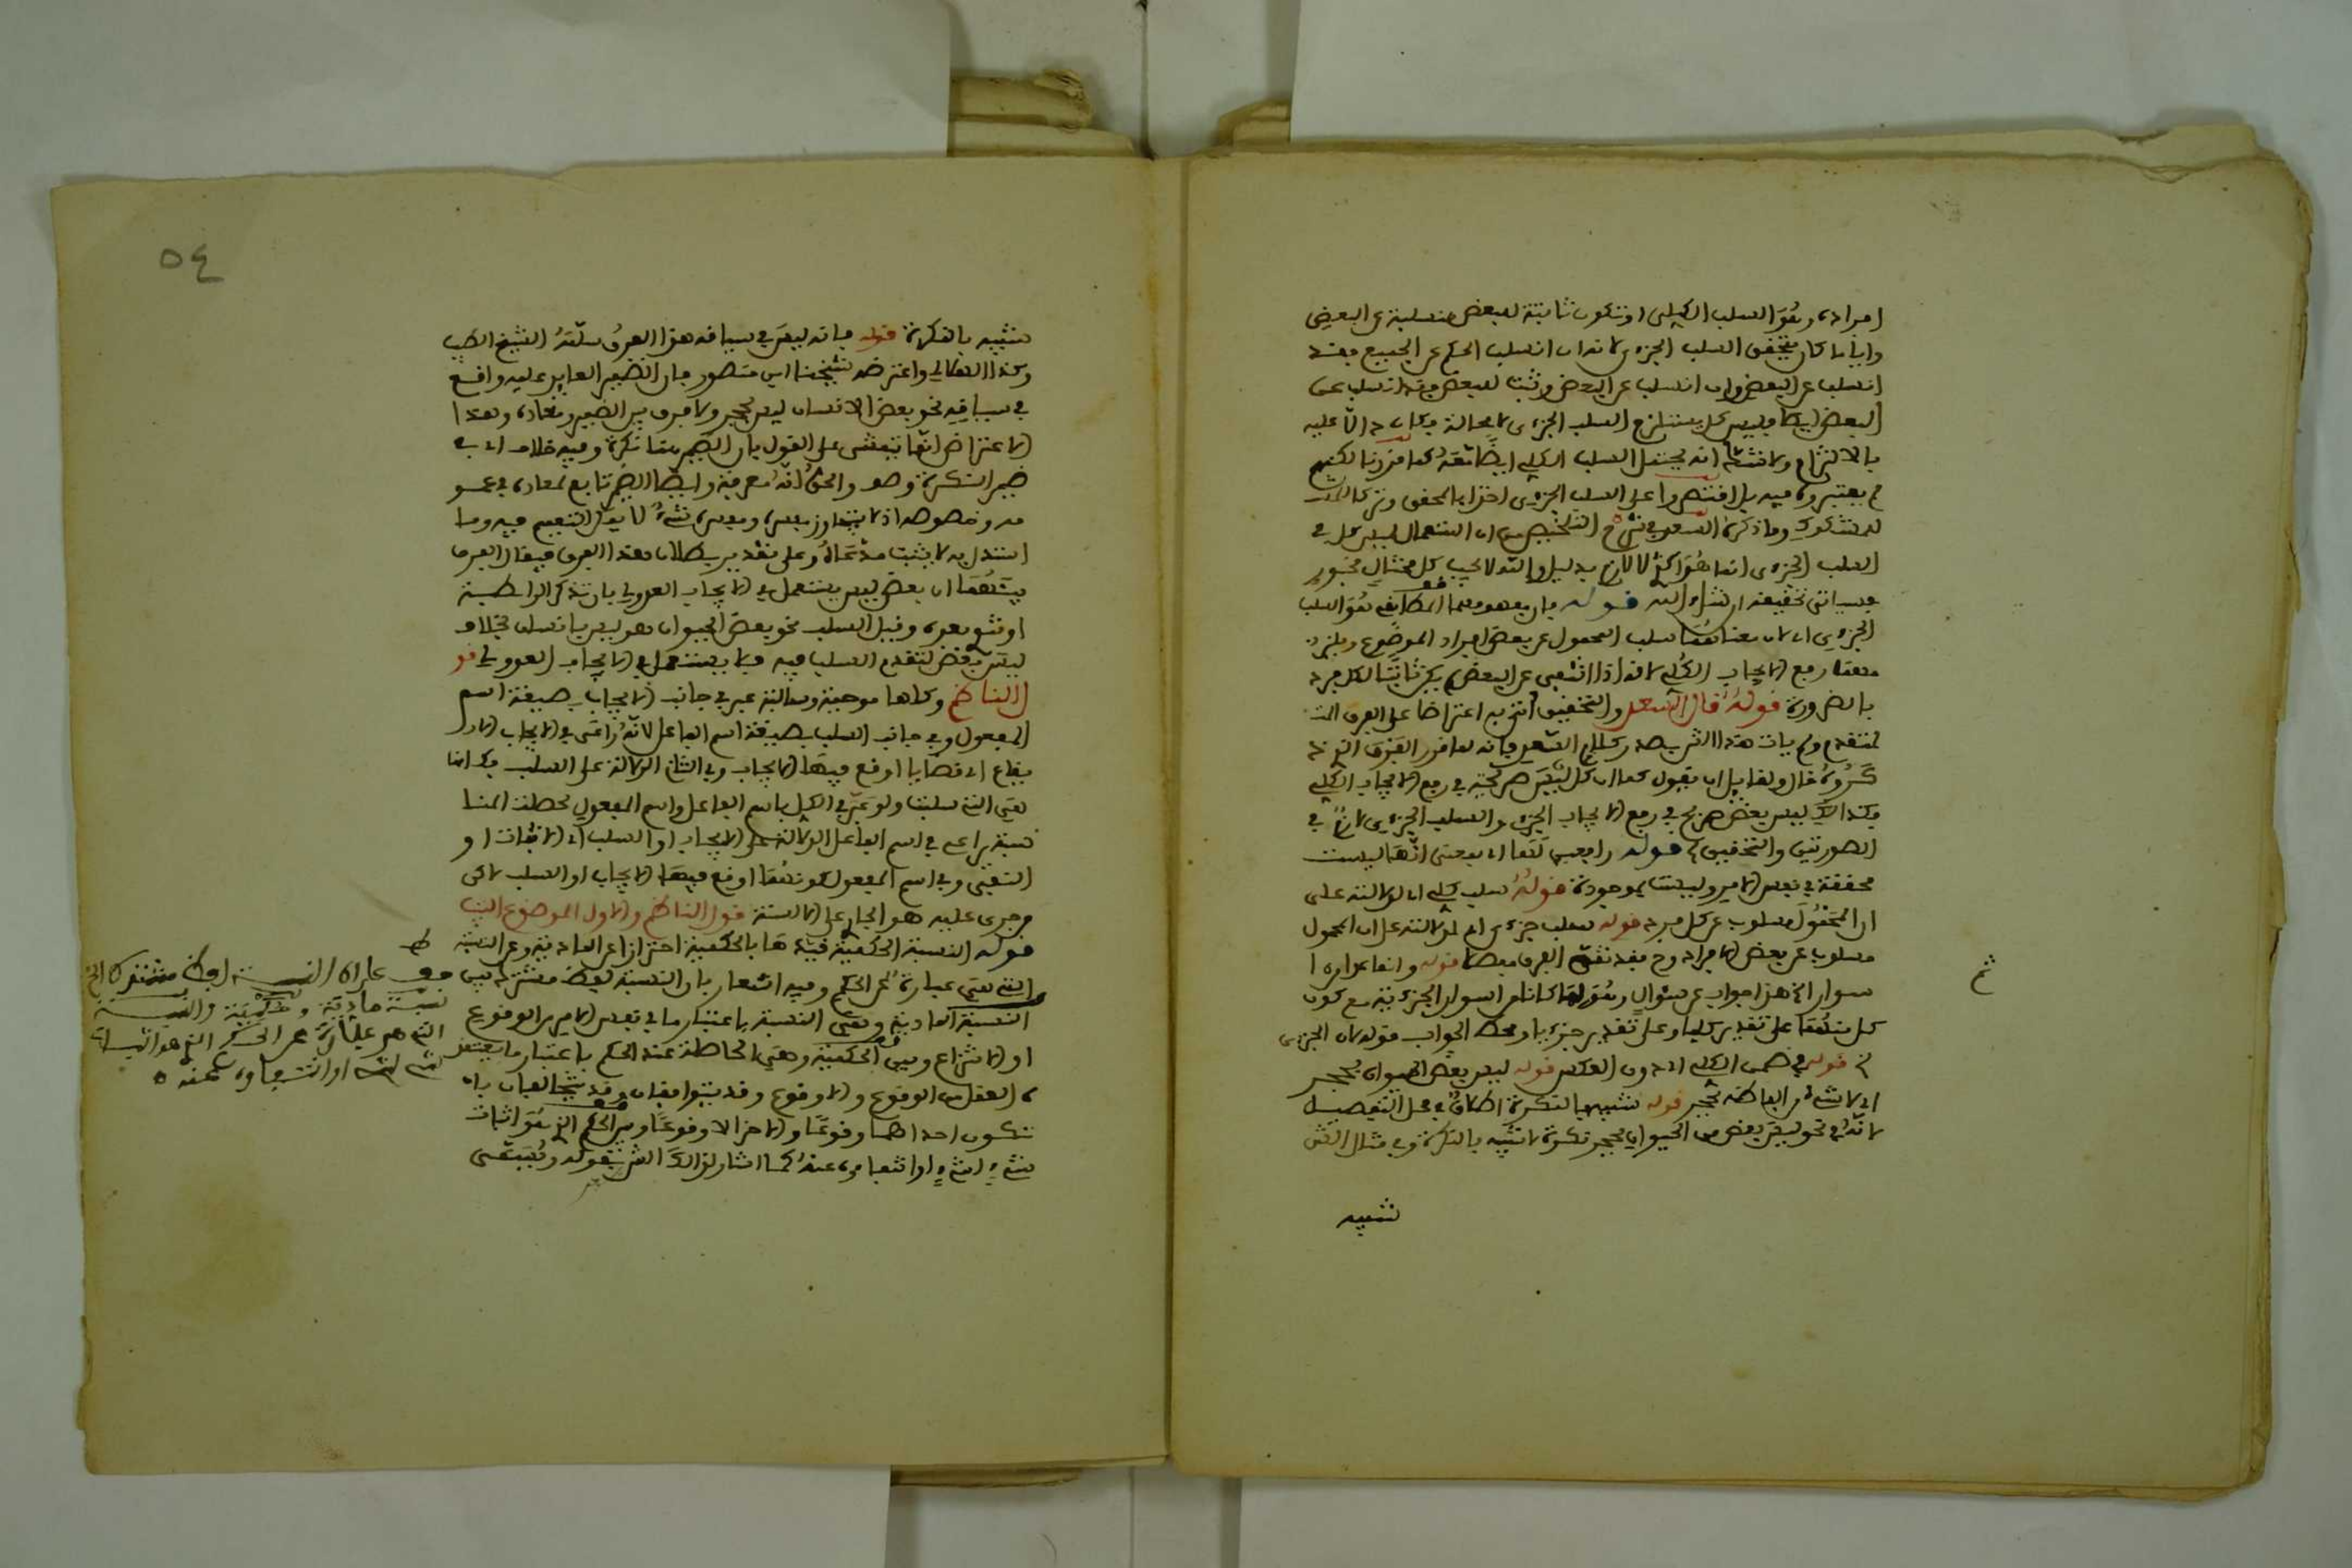 افراده وهُوَ السلب الكلي او تكون ثابتة لبعض منسلبة عن البعض
وأيا ما كان يتحقق السلب الجزءي لانه ان انسلب الحكم عن الجميع فقد
انسلب عن البعض وان انسلب عن البعض وثبت لبعض فقد انسلب عن
البعض ايضا فليس كل يستلزم السلب الجزءي لا محالة فكان دالا عليه
بالالتزام ولا شك انه يحتمل السلب الكلي ايضًا كما قررنا لكنهم
لم يعتبروه فيه بل اقتصروا على السلب الجزءي اخذا بالمحقق وتركا
للمشكوك وما ذكره السعد في شرح التلخيص من ان استعمال ليس كل في
السلب الجزءي انما هُوَ اكثري لا لازم بدليل والله لا يحب كل مختال فخور
فسياتي تحقيقه ان شاء الله قوله فان مفهومهما المطابقي هُوَ السلب
الجزءي اي لان معناهُمَا سلب المحمول عن بعض افراد الموضوع ويلزم
منهما رفع الايجاب الكلي لانه اذا انتفى عن البعض لم يكن ثابتًا لكل فرد
بالضرورة قولهُ قال السعد والتحقيق أتى به اعتراضا على الفرق
المتقدم ولم يات هذا الشرح صدر كلام السعد فانه لما قرر الفرق الذي
ذكروهُ قال ولقايل ان يقول كما ان كل ليْسَ صريحة في رفع الايجاب الكلي
فكذالك ليس بعض صريح في رفع الايجاب الجزءي والسلب الجزءي لازم في
الصورتين والتحقيق قوله رافعين لَهَا اي بمعنى انّهَا ليست
محققة في نفس الامر وليست بموجودة قولهُ سلب كلي اي لدلالته على
ان المحْمُولَ مسلوب عن كل فرد قوله سلب جزءي اي لدلالته على ان المحمول
مسلوب عن بعض الافراد وح فقد تمّ الفرق قوله وانما عدوا
سوار الخ هذا جواب عن سؤالٍ وهُوَ لِمَ كانا من اسوار الجزءية مع كون
كل منهُمَا على تقدير كليا وعلى تقدير جزءيا ومحط الجواب قوله لان الجزءي
الخ قوله في ضمن الكلي اي دون العكس قوله ليس بعض الحيوان بحجر
اي لا شيءَ من افراده بحجر قوله شبيه بالنكرة اطلاقٌ في محل التفصيل
لانَّهُ في نحو ليسَ بعض من الحيوان بحجر نكرة لا شَبِيه بالنكرة وفي مثال الش
شبيه
ثم
٥٤
شبيه بالنكرة قوله فانه ليسَ في سياقه هذا الفرقُ سلّمَهُ الشيخ الطيب
وكذا الهلالي واعترضه شيخنا ابن منصور بان الضمير العايد عليه واقع
في سياقِهِ نحو بعض الانسان ليس بحجر ولا فرق بين الضمير ومعاده وهذا
الاعتراض انّمَا يتمشى على القول بان الضمير هنا نكرة وفيه خلاف اي في
ضمير النكرة وصو والحقُّ انّهُ معرفة وايضا الضمير تابع لمعاده في عمو
مه وخصوصه اذ لا يتجاوز نفسه ونفسه شيءٌ لا يقبل التعميم فيه وما
استدل به لا يثبت مدّعَاهُ وعلى تقدير بطلان هذا الفرق فيقال الفرق
بينهُمَا ان بعض ليس يستعمل في الايجاب العدولي بان تذكر الرابطة
او تنوى بعده وقبل السلب نحو بعض الحيوان هو ليس بانسان بخلاف
ليسَ بعض لتقدم السلب فيه فلا يستعمل في الايجاب العدولي قو
ل الناظم وكلها موجبة وسالبة عبر في جانب الايجاب بصيغة اسم
المفعول وفي جانب السلب بصيغة اسم الفاعل لانّهُ رَاعَى في الايجاب الا
يقاع اي قضايا اوقع فيهَا الايجاب وفي الثاني الدلالة على السلب فكانما
هِيَ التي سلبت ولو عَبّر في الكل باسم الفاعل واسم المفعول لحصلت المنا
سبة يراعى في اسم الفاعل الدلالة على الايجاب او السلب اي الاثبات او
النفي وفي اسم المفعول كونُهَا اوقع فيهَا الايجاب او السلب لاكن
جرى عليه هو الجاري على الالسنة قول الناظم والاول الموضوع الخ
قوله النسبة الحكمية قيّدهَا بالحكمية احترازا عن المادية وعن النسبة
التي هِيَ عبارةٌ عن الحكم وفيه اشعار بان النسبة لفظ مشترك بين
النسبة المادية وهِيَ النسبة باعتبار ما في نفس الامر من الوقوع
او الانتزاع وبين الحكمية وهِيَ الحاصلة عند الحكم باعتبار ما يعتقد
ه العقل من الوقوع والاوقوع وقد يتوافقان وقد يتخالفان بان
تكون احداهما وقوعًا والاخرى لا وقوعًا وبين الحكم الذي هُوَ اثبات
شيءٍ لشيءٍ او انتفاءه عنهُ كما اشار لذالك الش بقوله ويُسَمَّى
قف على ان النسبة لفظ مشترك الخ
نسبة مادية وحُكْمِيّة والنسبة
التي هي عبارة عن الحكم الذي هو اثبات
شيء لشيء او انتفاءه عنه